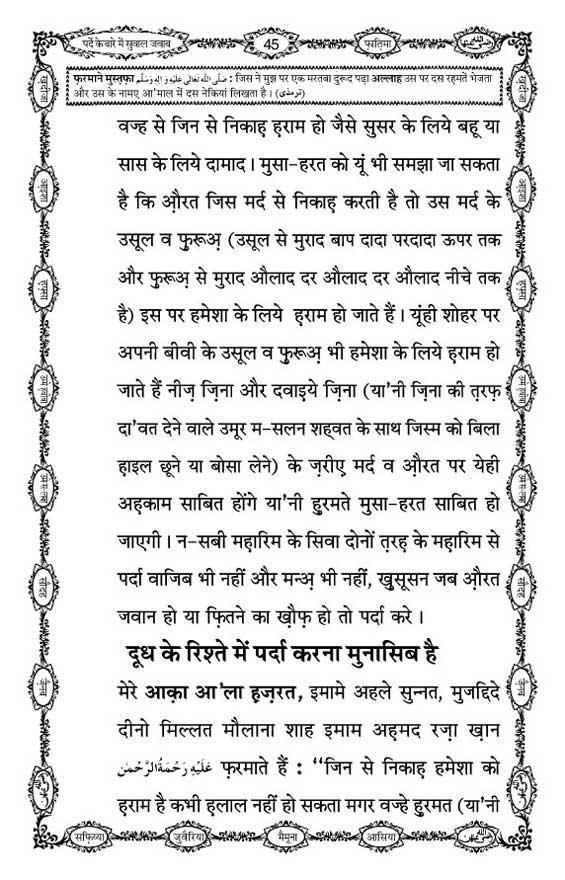 पर्दे के बारे में सुवाल जवाब
45
फ़ातिमा
फ़रमाने मुस्तफ़ा صَلَّى اللّٰهُ تَعَالٰى عَلَيْهِ وَاٰلِهٖ وَسَلَّم : जिस ने मुझ पर एक मरतबा दुरूद पढ़ा अल्लाह उस पर दस रहमतें भेजता
और उस के नामए आ'माल में दस नेकियां लिखता है । (ترمذی)
वज्ह से जिन से निकाह़ ह़राम हो जैसे सुसर के लिये बहू या
सास के लिये दामाद । मुसा-हरत को यूं भी समझा जा सकता
है कि औ़रत जिस मर्द से निकाह़ करती है तो उस मर्द के
उसूल व फ़ुरूअ़ (उसूल से मुराद बाप दादा परदादा ऊपर तक
और फ़ुरूअ़ से मुराद औलाद दर औलाद दर औलाद नीचे तक
है) इस पर हमेशा के लिये ह़राम हो जाते हैं । यूंही शोहर पर
अपनी बीवी के उसूल व फ़ुरूअ़ भी हमेशा के लिये ह़राम हो
जाते हैं नीज़ ज़िना और दवाइये ज़िना (या'नी ज़िना की त़रफ़
दा'वत देने वाले उमूर म-सलन शह्वत के साथ जिस्म को बिला
हाइल छूने या बोसा लेने) के ज़रीए मर्द व औ़रत पर येही
अह़काम साबित होंगे या'नी ह़ुरमते मुसा-हरत साबित हो
जाएगी । न-सबी महारिम के सिवा दोनों त़रह़ के महारिम से
पर्दा वाजिब भी नहीं और मन्अ़ भी नहीं, ख़ुसूसन जब औ़रत
जवान हो या फ़ितने का ख़ौफ़ हो तो पर्दा करे ।
दूध के रिश्ते में पर्दा करना मुनासिब है
मेरे आक़ा आ'ला ह़ज़रत, इमामे अहले सुन्नत, मुजद्दिदे
दीनो मिल्लत मौलाना शाह इमाम अह़मद रज़ा ख़ान
عَلَيْهِ رَحْمَةُ الرَّحْمٰن फ़रमाते हैं : ‘‘जिन से निकाह़ हमेशा को
ह़राम है कभी ह़लाल नहीं हो सकता मगर वज्हे ह़ुरमत (या'नी
सफ़िय्या
जुवैरिया
मैमूना
आसिया